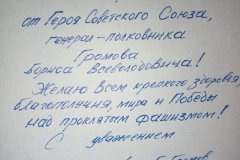 от Героя Советского Союза,
генерал-полковника
Громова
Бориса Всеволодовича!
Желаю Всем крепкого здоровья,
благополучия, мира и Победы
над проклятым фашизмом!
С уважением